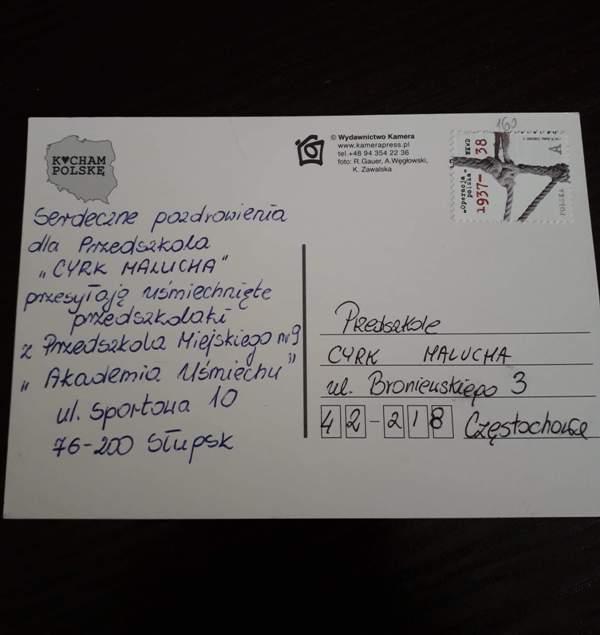 K♥CHAM
POLSKĘ
© Wydawnictwo Kamera
www.kamerapress.pl
tel.+48 94 354 22 36
foto: R.Gauer, A.Węgłowski,
K. Zawalska
160
"Operacja
polska" NKWD
1937-38
A
POLSKA
Serdeczne pozdrowienia
dla Przedszkola
„CYRK MALUCHA"
przesyłają uśmiechnięte
przedszkolaki
z Przedszkola Miejskiego nr 9
„Akademia Uśmiechu"
ul. Sportowa 10
76-200 Słupsk
Przedszkole
CYRK MALUCHA
ul. Broniewskiego 3
42-218 Częstochowa